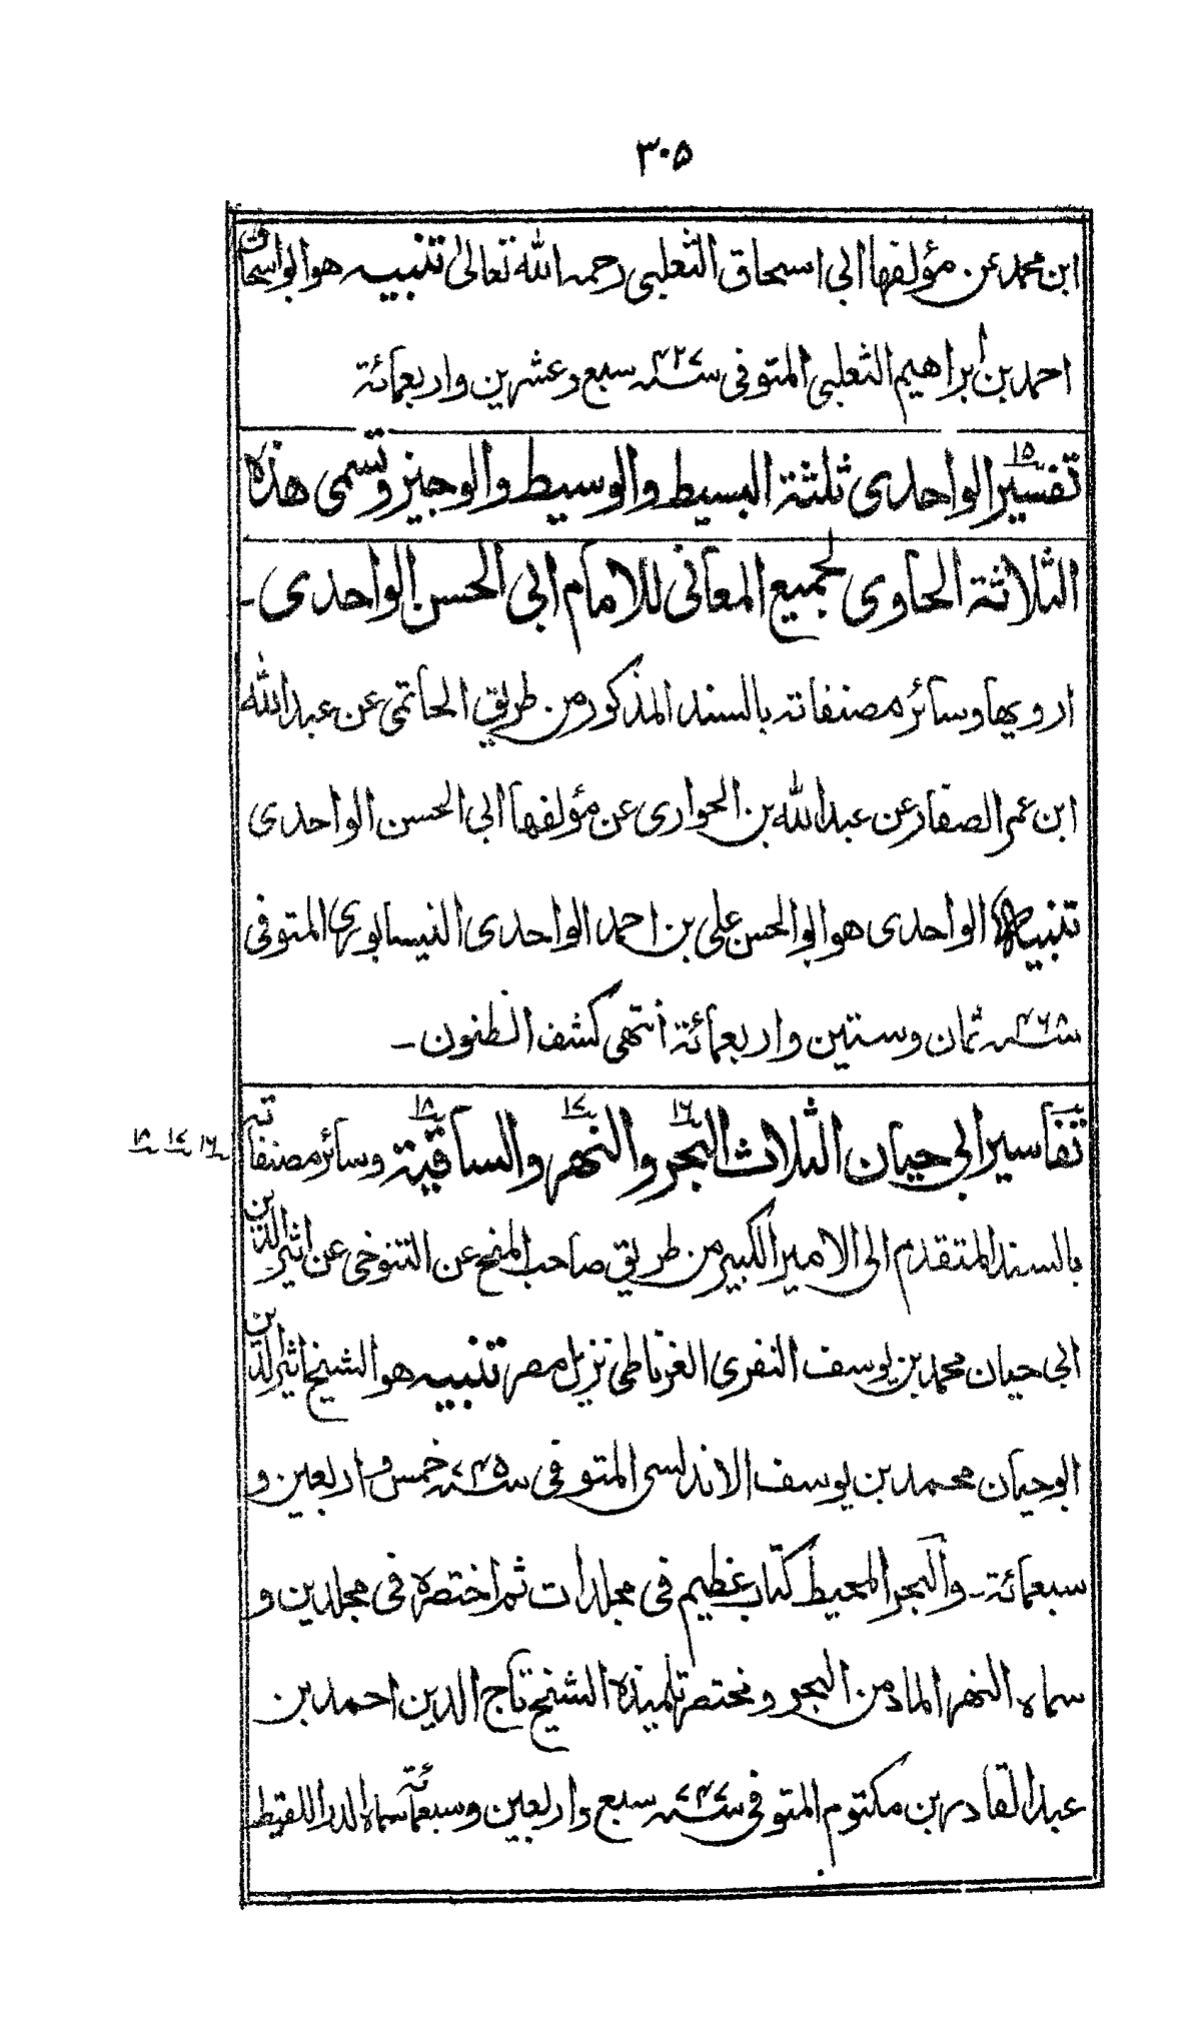 ٣٠٥
ابن محمد عن مؤلفها ابي اسحاق الثعلبي رحمه الله تعالى تنبيه هو ابو اسحاق
احمد بن ابراهيم الثعلبي المتوفى سنه ٤٢٧ سبع وعشرين واربعمائة
تفسير ١٥ الواحدى ثلثة البسيط والوسيط والوجيز وتسمى هذه
الثلاثة الحاوى لجميع المعانى للامام ابى الحسن الواحدى ـ
ارويها وسائر مصنفاته بالسند المذكور من طريق الحاتمى عن عبدالله
ابن عمر الصفار عن عبدالله بن الحوارى عن مؤلفها ابى الحسن الواحدى
تنبيه الواحدى هو ابو الحسن على بن احمد الواحدى النيسابورى المتوفى
سنه ٤٦٨ ثمان وستين واربعمائة انتهى كشف الظنون ـ
تفاسير ابى حيان الثلاث البحر ١٦ والنهر ١٧ والساقية ١٨ وسائر مصنفاته
١٦ ١٧ ١٨
بالسند المتقدم الى الامير الكبير من طريق صاحب المنح عن التنوخى عن اثير الدين
ابى حيان محمد بن يوسف النفرى الغرناطى نزيل مصر تنبيه هو الشيخ اثير الدين
ابو حيان محمد بن يوسف الاندلسى المتوفى سنه ٧٤٥ خمس واربعين و
سبعمائة ـ والبحر المحيط كتاب عظيم فى مجلدات ثم اختصره فى مجلدين و
سماه النهر الماد من البحر ومختصر تلميذه الشيخ تاج الدين احمد بن
عبد القادر بن مكتوم المتوفى سنه ٧٤٧ سبع واربعين وسبعمائة سماه الدر اللقيط